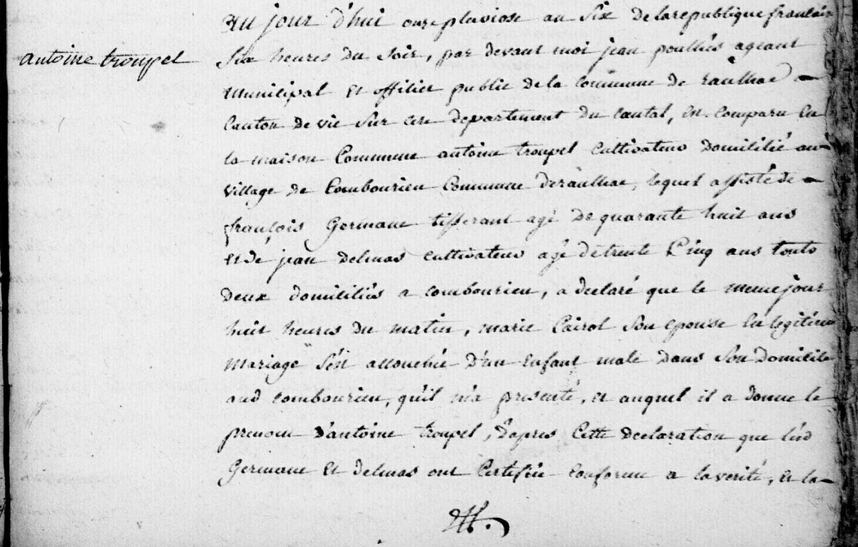 au jour d'hui onze pluviose an Six de la republique francaise
antoine troupel
Six heures du Soir, par devant moi jean poulhès ageant
Municipal et officier public de la Commune de raulhac
Canton de vic Sur cere departement du cantal, est comparu en
la maison Commune antoine troupel cultivateur domicilié au
village de Combourieu Commune de raulhac, lequel assisté de
françois Germane tisserant agé de quarante huit ans
et de jean delmas cultivateur agé de trente Cinq ans touts
deux domiciliés a combourieu, a declaré que le meme jour
huit heures du matin, marie Cairol Son epouse en legitime
Mariage S'est accouchée D'un Enfant male dans Son domicile
aud combourieu, qu'il m'a presenté, et auquel il a donne le
prenom d'antoine troupel, d'apres Cette declaration que lesd
Germane et delmas ont Certifiée conforme a la verité, et la